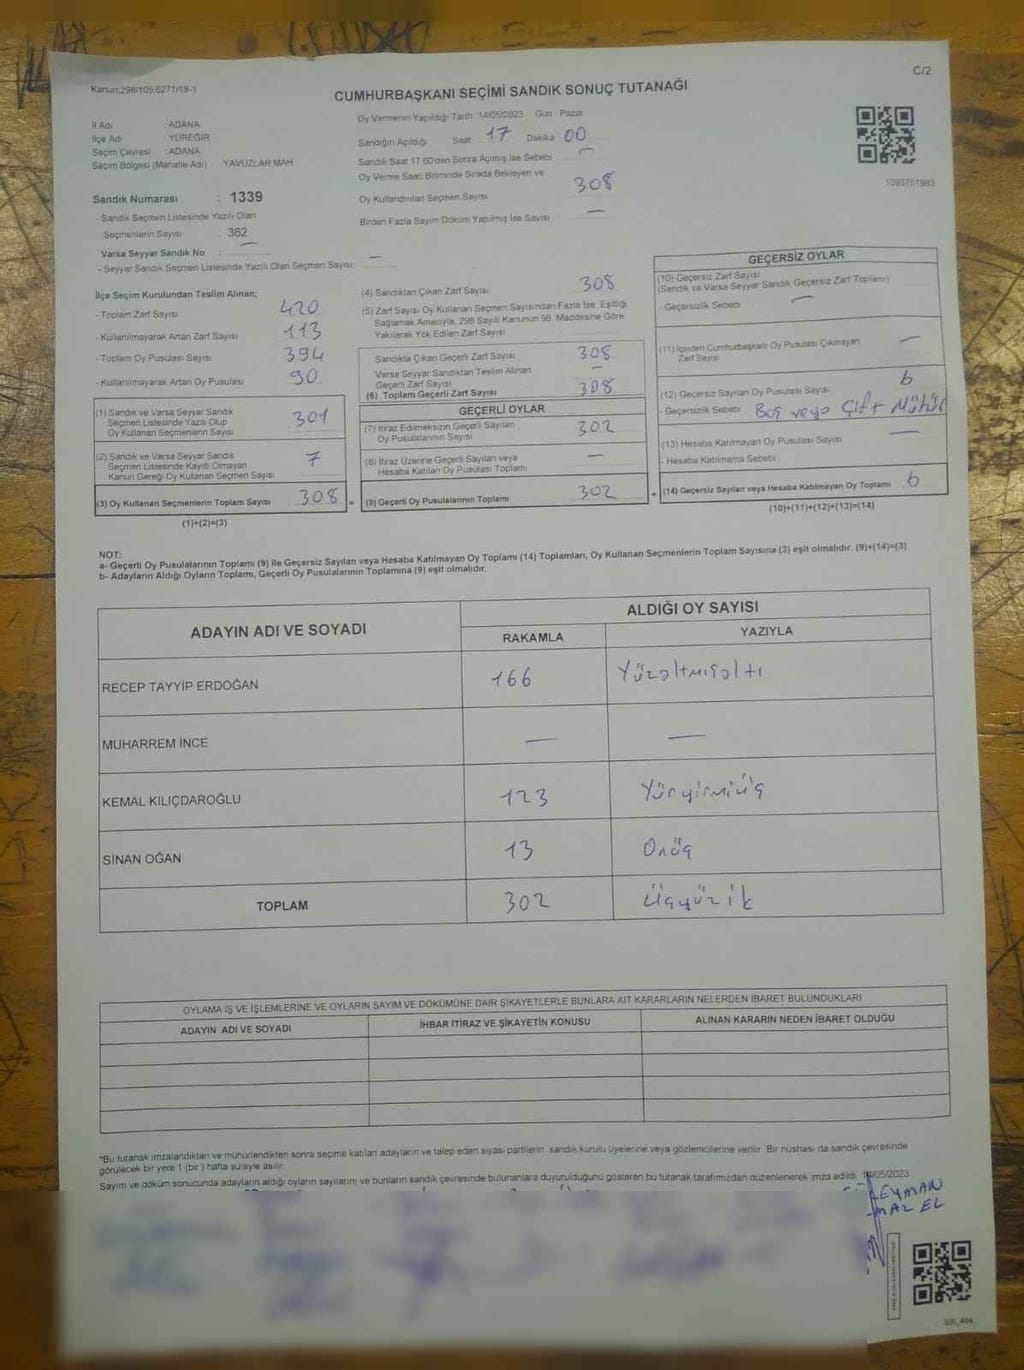 C/2
Kanun:298/105;6271/18-1
CUMHURBAŞKANI SEÇİMİ SANDIK SONUÇ TUTANAĞI
İl Adı : ADANA
İlçe Adı : YÜREĞİR
Seçim Çevresi : ADANA
Seçim Bölgesi (Mahalle Adı) YAVUZLAR MAH
Sandık Numarası : 1339
- Sandık Seçmen Listesinde Yazılı Olan
Seçmenlerin Sayısı : 362
Varsa Seyyar Sandık No : —
- Seyyar Sandık Seçmen Listesinde Yazılı Olan Seçmen Sayısı: —
Oy Vermenin Yapıldığı Tarih: 14/05/2023 Gün : Pazar
Sandığın Açıldığı Saat 17 Dakika 00
Sandık Saat 17.00'den Sonra Açılmış İse Sebebi —
Oy Verme Saati Bitiminde Sırada Bekleyen ve
Oy Kullandırılan Seçmen Sayısı 308
Birden Fazla Sayım Döküm Yapılmış İse Sayısı —
1093751983
İlçe Seçim Kurulundan Teslim Alınan;
- Toplam Zarf Sayısı 420
- Kullanılmayarak Artan Zarf Sayısı 113
- Toplam Oy Pusulası Sayısı 394
- Kullanılmayarak Artan Oy Pusulası 90
(1) Sandık ve Varsa Seyyar Sandık
Seçmen Listesinde Yazılı Olup
Oy Kullanan Seçmenlerin Sayısı 301
(2) Sandık ve Varsa Seyyar Sandık
Seçmen Listesinde Kayıtlı Olmayan
Kanun Gereği Oy Kullanan Seçmen Sayısı 7
(3) Oy Kullanan Seçmenlerin Toplam Sayısı 308 =
(1)+(2)=(3)
(4) Sandıktan Çıkan Zarf Sayısı 308
(5) Zarf Sayısı Oy Kullanan Seçmen Sayısından Fazla İse, Eşitliği
Sağlamak Amacıyla, 298 Sayılı Kanunun 98. Maddesine Göre
Yakılarak Yok Edilen Zarf Sayısı
Sandıkta Çıkan Geçerli Zarf Sayısı 308
Varsa Seyyar Sandıktan Teslim Alınan
Geçerli Zarf Sayısı —
(6) Toplam Geçerli Zarf Sayısı 308
GEÇERLİ OYLAR
(7) İtiraz Edilmeksizin Geçerli Sayılan
Oy Pusulalarının Sayısı 302
(8) İtiraz Üzerine Geçerli Sayılan veya
Hesaba Katılan Oy Pusulası Toplamı —
(9) Geçerli Oy Pusulalarının Toplamı 302 +
GEÇERSİZ OYLAR
(10) Geçersiz Zarf Sayısı
(Sandık ve Varsa Seyyar Sandık Geçersiz Zarf Toplamı)
- Geçersizlik Sebebi —
(11) İçinden Cumhurbaşkanı Oy Pusulası Çıkmayan
Zarf Sayısı —
(12) Geçersiz Sayılan Oy Pusulası Sayısı 6
- Geçersizlik Sebebi Boş veya Çift Mühür
(13) Hesaba Katılmayan Oy Pusulası Sayısı —
- Hesaba Katılmama Sebebi
(14) Geçersiz Sayılan veya Hesaba Katılmayan Oy Toplamı 6
(10)+(11)+(12)+(13)=(14)
NOT:
a- Geçerli Oy Pusulalarının Toplamı (9) ile Geçersiz Sayılan veya Hesaba Katılmayan Oy Toplamı (14) Toplamları, Oy Kullanan Seçmenlerin Toplam Sayısına (3) eşit olmalıdır. (9)+(14)=(3)
b- Adayların Aldığı Oyların Toplamı, Geçerli Oy Pusulalarının Toplamına (9) eşit olmalıdır.
ADAYIN ADI VE SOYADI
ALDIĞI OY SAYISI
RAKAMLA YAZIYLA
RECEP TAYYİP ERDOĞAN 166 Yüzaltmışaltı
MUHARREM İNCE — —
KEMAL KILIÇDAROĞLU 123 Yüzyirmiüç
SİNAN OĞAN 13 Onüç
TOPLAM 302 Üçyüzik
OYLAMA İŞ VE İŞLEMLERİNE VE OYLARIN SAYIM VE DÖKÜMÜNE DAİR ŞİKAYETLERLE BUNLARA AİT KARARLARIN NELERDEN İBARET BULUNDUKLARI
ADAYIN ADI VE SOYADI İHBAR İTİRAZ VE ŞİKAYETİN KONUSU ALINAN KARARIN NEDEN İBARET OLDUĞU
*Bu tutanak imzalandıktan ve mühürlendikten sonra seçime katılan adayların ve talep eden siyasi partilerin sandık kurulu üyelerine veya gözlemcilerine verilir. Bir nüshası da sandık çevresinde
görülecek bir yere 1 (bir) hafta süreyle asılır.
Sayım ve döküm sonucunda adayların aldığı oyların sayılarını ve bunların sandık çevresinde bulunanlara duyurulduğunu gösteren bu tutanak tarafımızdan düzenlenerek imza edildi. 14/05/2023